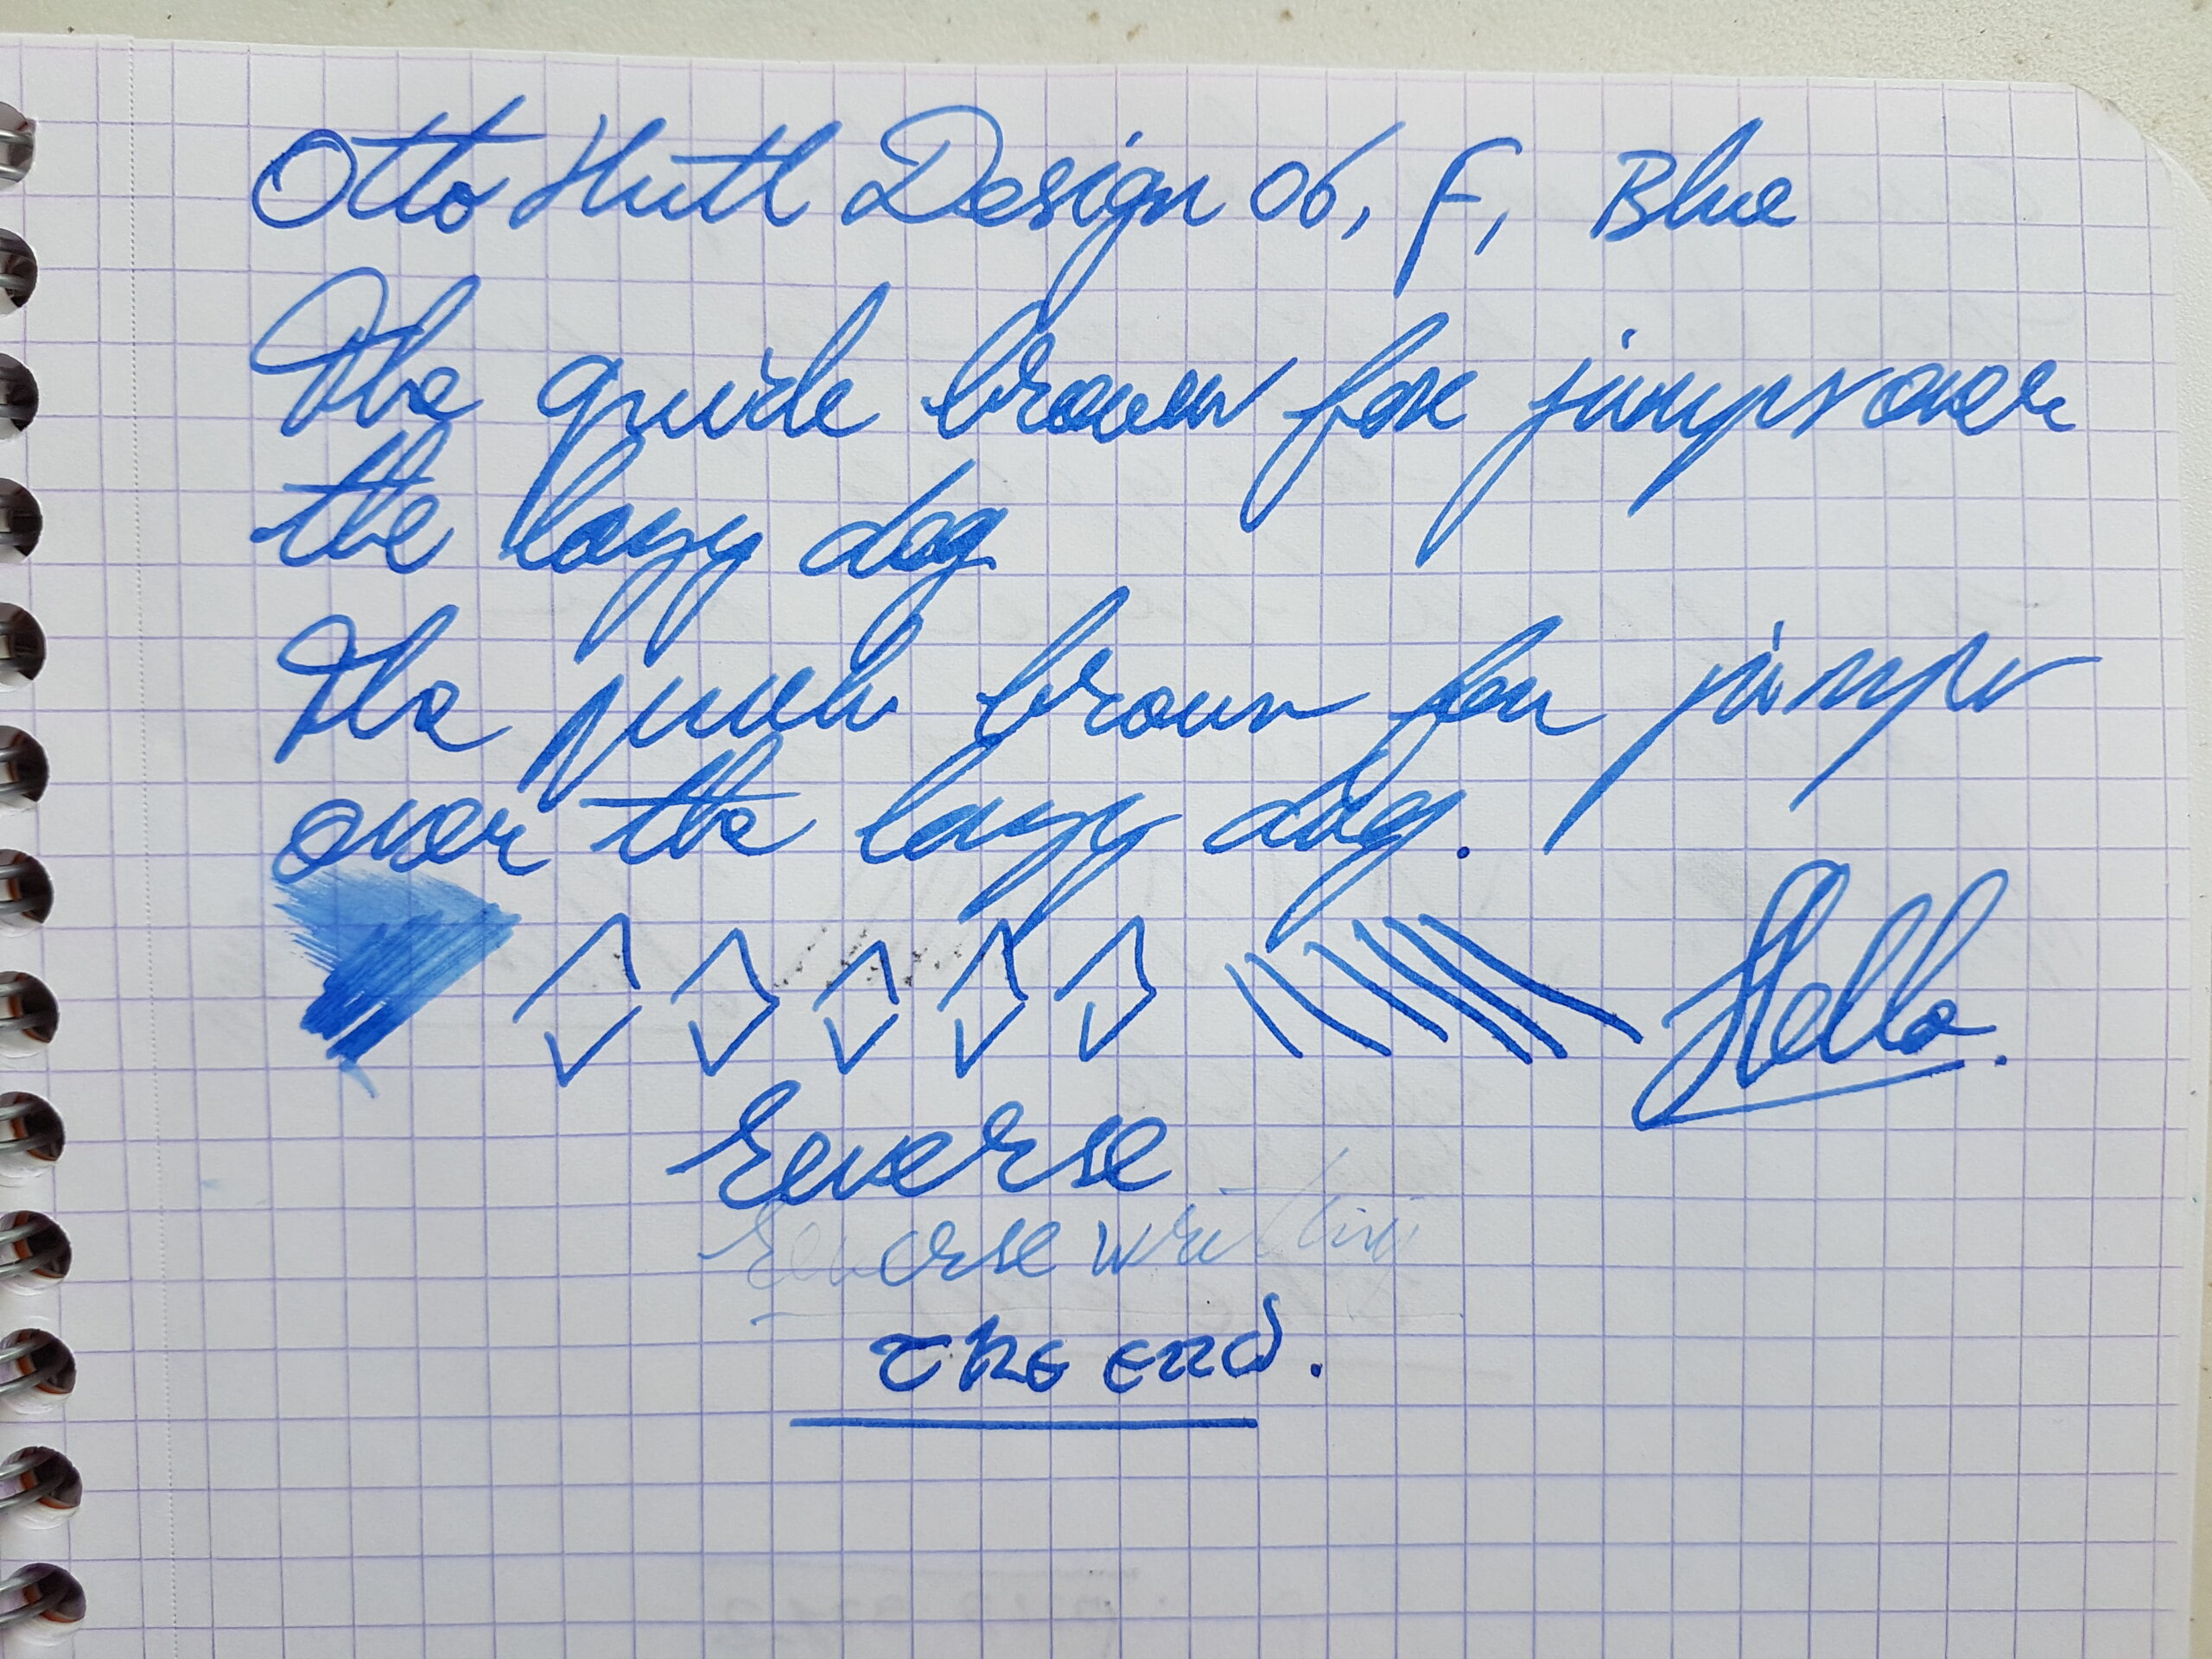 Otto Hutt Design 06, F, Blue
The quick brown fox jumps over
the lazy dog
The quick brown fox jumps
over the lazy dog.
Hello.
Reverse
Reverse writing
The end.